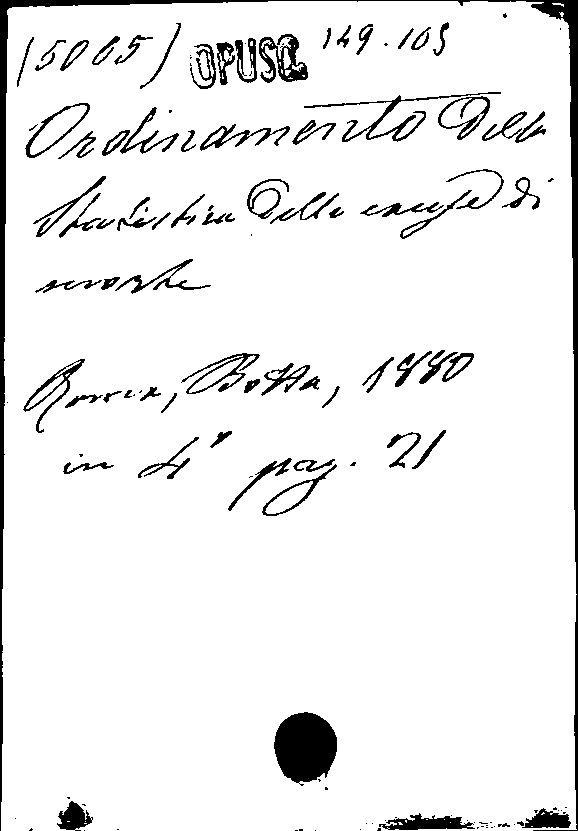 (5005) OPUSC. 149.103
Ordinamento della
Statistica delle cause di
morte
Roma, Botta, 1880
in 4° pag. 21